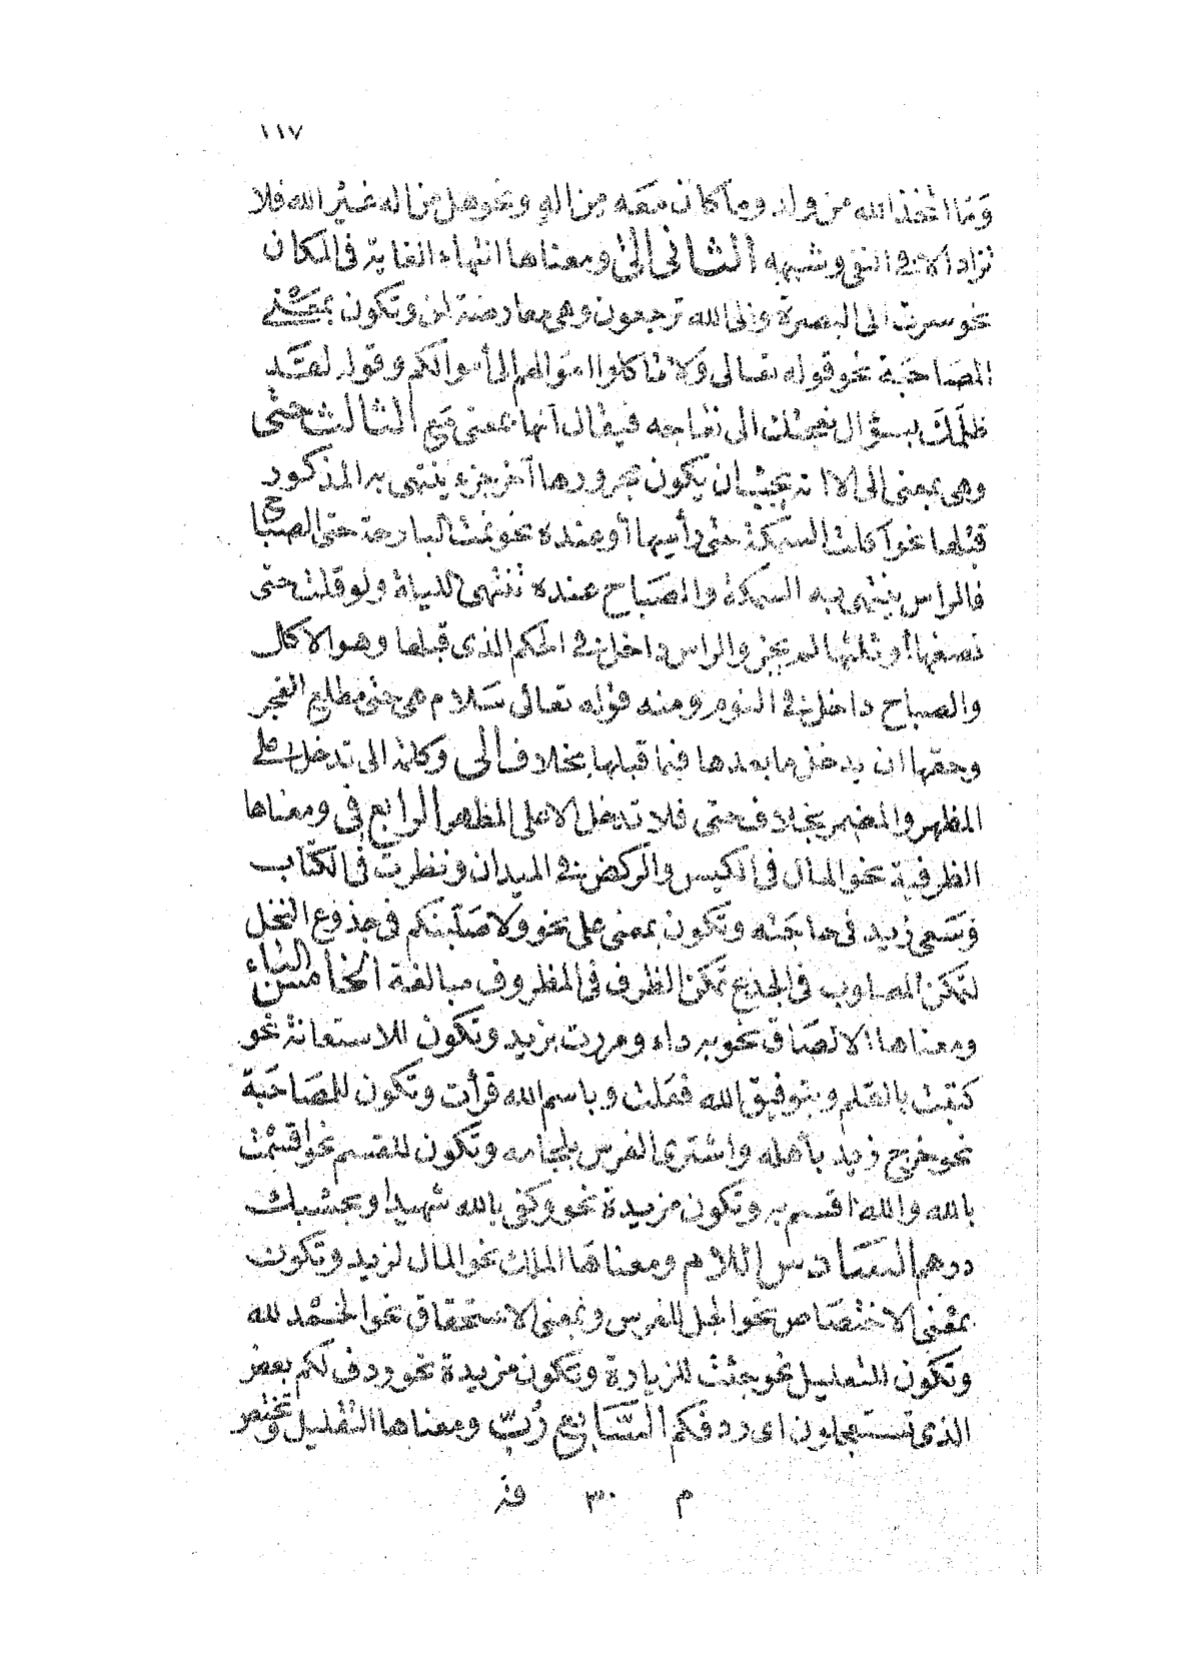 ١١٧
وَمَا اتخذ الله من ولد وما كان مَعَه مِن اله ونحو هل من اله غَيْر الله فلا
تزاد الا فى النفى وشبهه الثانى الى ومعناها انتهاء الغاية فى المكان
نحو سرت الى البصرة والى الله ترجعون وهى معارضة لمن وتكون بمعنى
المصَاحَبة نحو قوله تعالى وَلا تأكلوا اموالهم الى أموالكم وقوله لقَد
ظلَمَك بسؤال نعجتك الى نعاجه فيقال انها بمعنى مَع الثالث حتى
وهى بمعنى الى الا انه يجب ان يكون مجرورها آخر جزء ينتهى به المذكور
قبلها نحو أكلت السَمكة حتى رأسها أو عنده نحو نمت البارحة حتى الصباح
فالراس ينتهى به السمكة والصَباح عنده تنتهى الليلة ولو قلت حتى
نصفها أو ثلثها لم يجز والراس داخل فى الحكم الذى قبلها وهو الاكل
والصباح داخل فى النوم ومنه قوله تعالى سَلام هى حتى مطلع الفجر
وحقها ان يدخل ما بعدها فيما قبلها بخلاف الى وكلمة الى تدخل على
المظهر والمضمر بخلاف حتى فلا تدخل الا على المظهر الرابع فى ومعناها
الظرفية نحو المال فى الكيس والركض فى الميدان ونظرت فى الكتاب
وَسَعى زيد فى حاجَته وتكون بمعنى على نحو ولاصَلّبنكم فى جذوع النخل
لتمكن المصلوب فى الجذع تمكن الظرف فى المظروف مبالغة الخامس الباء
ومعناها الالصَاق نحو به داء ومررت بزيد وتكون للاستعانة نحو
كتبت بالقلم وبتوفيق الله فعَلت وباسم الله قرأت وتكون للمصَاحَبة
نحو خرج زيد بأهله واشترى الفرس بلجامه وتكون للقسم نحو اقسمْت
بالله والله اقسم به وتكون مزيدة نحو وكفى بالله شهيدا وبحسبك
درهم السَادس اللام ومعناهَا الملك نحو المال لزيد وتكون
بمعْنى الاختصَاص نحو الجل للفرس وبمعنى الاستحقاق نحو الحمْد لله
وتكون للتعليل نحو جئت للزيارة وتكون مزيدة نحو ردف لكم بعض
الذى تستعجلون اى ردفكم السَّابع رُبّ ومعناها التقليل وتختص
م ٣٠ فذ